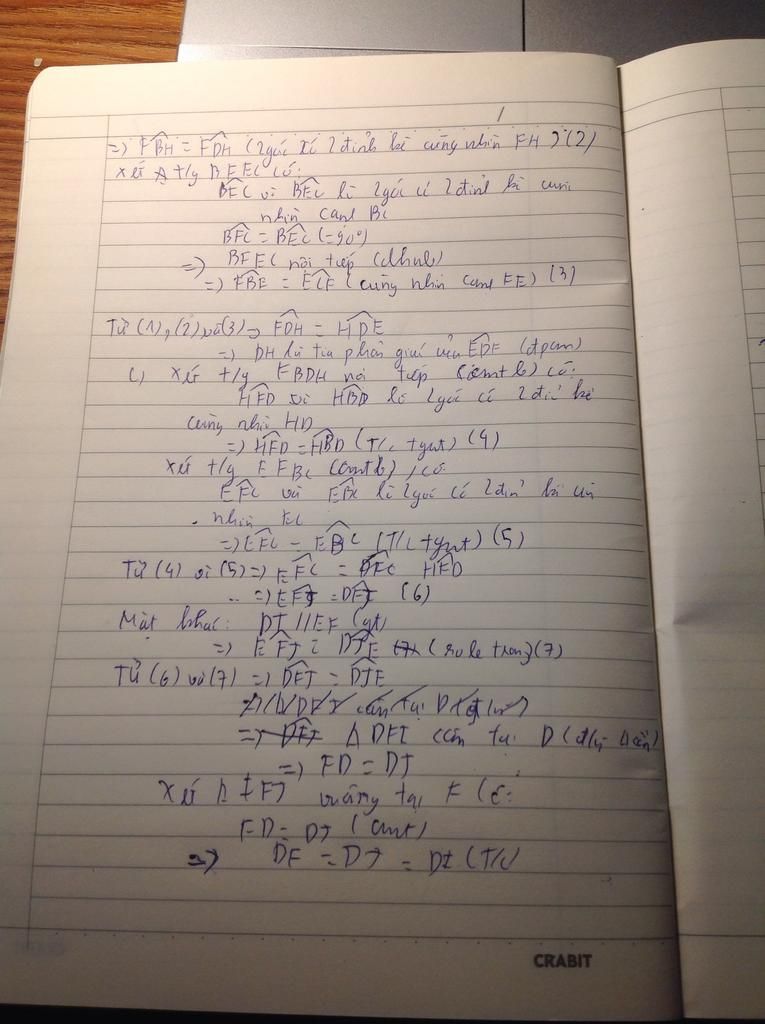 => FBH = FDH (2 góc có 2 đỉnh kề cùng nhìn FH) (2)
Xét t/g BFEC có:
BFC và BEC là 2 góc có 2 đỉnh kề cùng
nhìn cạnh BC
BFC = BEC (=90°)
=> BFEC nội tiếp (dhnb)
=> FBE = ECF (cùng nhìn cạnh FE) (3)
Từ (1), (2) và (3) => FDH = HDE
=> DH là tia phân giác của EDF (đpcm)
c) Xét t/g FBDH nội tiếp (cmt b) có:
HFD và HBD là 2 góc có 2 đỉnh kề
cùng nhìn HD
=> HFD = HBD (T/c tgnt) (4)
Xét t/g EFBC (cmt b), có
EFC và EBC là 2 góc có 2 đỉnh kề cùng
nhìn EC
=> EFC = EBC (T/c tgnt) (5)
Từ (4) và (5) => EFC = HFD
=> EFJ = DFJ (6)
Mặt khác: DI // EF (gt)
=> EFJ = DJF (so le trong) (7)
Từ (6) và (7) => DFJ = DJF
=> Δ DFJ cân tại D
=> Δ DFJ cân tại D (đ/lý Δ cân)
=> FD = DJ
Xét Δ IFJ vuông tại F có:
FD = DJ (cmt)
=> DF = DJ = DI (T/c)
CRABIT